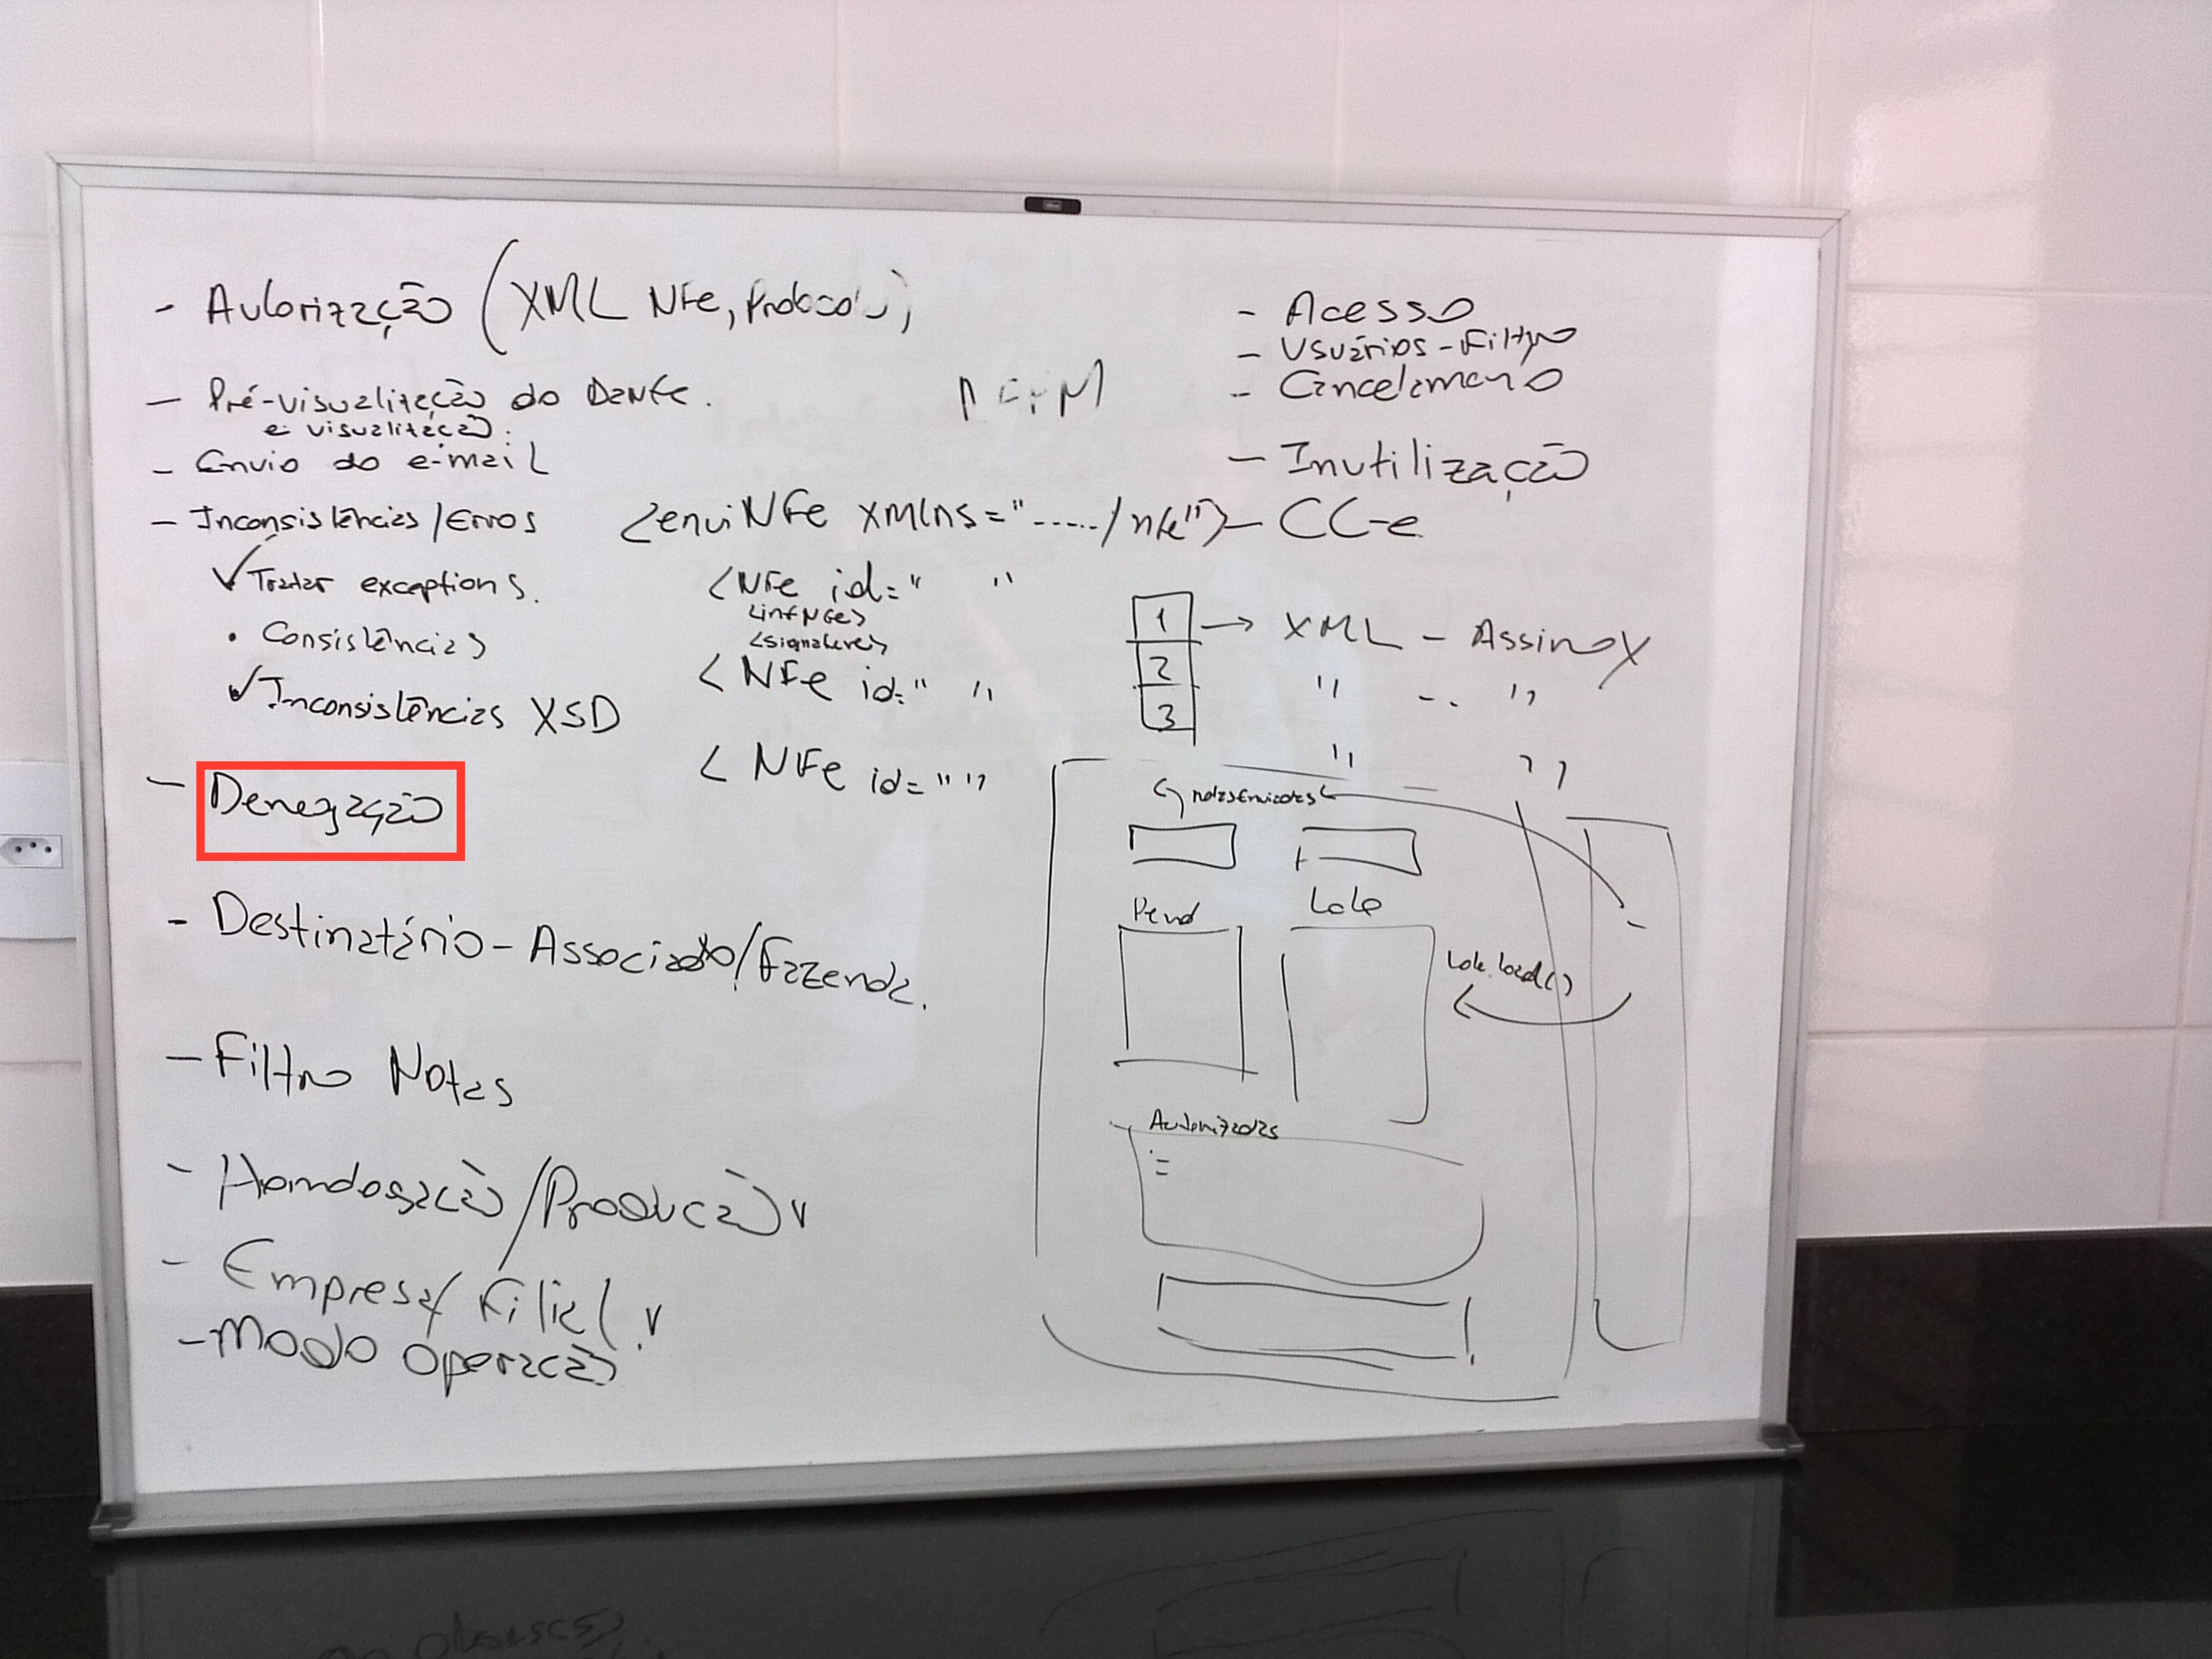 - Autorização (XML NFe, Protocolo)
- Pré-visualização do Danfe.
e visualização.
- Envio do e-mail
- Inconsistências/Erros
✓ Tratar exceptions.
• Consistências
✓ Inconsistências XSD
- Denegação
- Destinatário - Associado/Fazenda.
- Filtro Notas
- Homologação/Produção v
- Empresa/Filial v
- Modo Operação
<enviNFe xmlns="....../nfe">
<NFe id=" "
<infNFe>
<signature>
<NFe id=" "
<NFe id=" "
- Acesso
- Usuários - Filtro
- Cancelamento
- Inutilização
- CC-e
1 → XML - Assino
2 " - "
3 " "
Pend
Lote
Lote.load()
Autorizadas